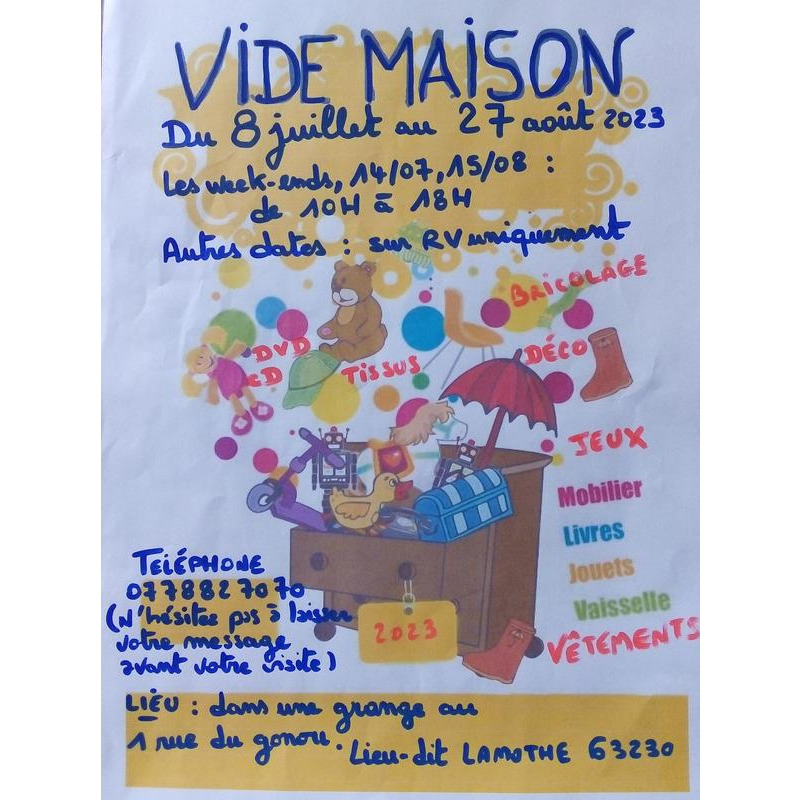 VIDE MAISON
Du 8 juillet au 27 août 2023
Les week-ends, 14/07, 15/08 :
de 10H à 18H
Autres dates : sur RV uniquement
BRICOLAGE
DVD
CD
TISSUS
DÉCO
JEUX
Mobilier
Livres
Jouets
Vaisselle
VÊTEMENTS
TELÉPHONE
0778827070
(N'hésitez pas à laisser
votre message
avant votre visite)
2023
LIEU : dans une grange au
1 rue du gonou. Lieu-dit LAMOTHE 63230